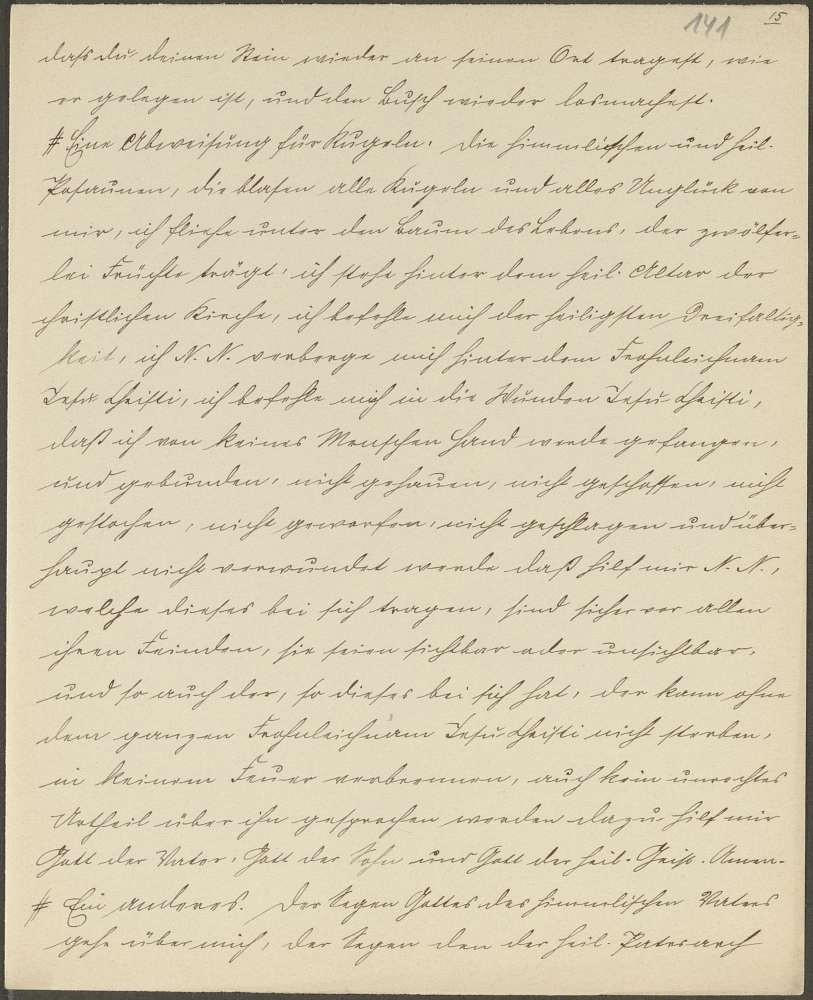 141 15
daß du deinen Stein wieder an seinen Ort tragest, wie
er gelegen ist, und den Busch wieder losmachest.
# Eine Abweisung für Kugeln. Die himmlischen und heil.
Posaunen, die blasen alle Kugeln und alles Unglück von
mir, ich fliehe unter den Baum des Lebens, der zwölfer-
lei Früchte trägt, ich stehe hinter dem heil. Altar der
christlichen Kirche, ich befehle mich der heiligsten Dreifaltig-
keit, ich N. N. verberge mich hinter dem Frohnleichnam
Jesu Christi, ich befehle mich in die Wunden Jesu Christi,
daß ich von keines Menschen Hand werde gefangen,
und gebunden, nicht gehauen, nicht geschossen, nicht
gestochen, nicht geworfen, nicht geschlagen und über-
haupt nicht verwundet werde daß hilf mir N. N.,
welche dieses bei sich tragen, sind sicher vor allen
ihren Feinden, sie seien sichtbar oder unsichtbar,
und so auch der, so dieses bei sich hat, der kann ohne
dem ganzen Frohnleichnam Jesu Christi nicht sterben,
in keinem Feuer verbrennen, auch kein unrechtes
Urtheil über ihn gesprochen werden dazu hilf mir
Gott der Vater, Gott der Sohn und Gott der heil. Geist. Amen.
# Ein anderes. Der Segen Gottes des himmlischen Vaters
gehe über mich, der Segen den der heil. Patriarch